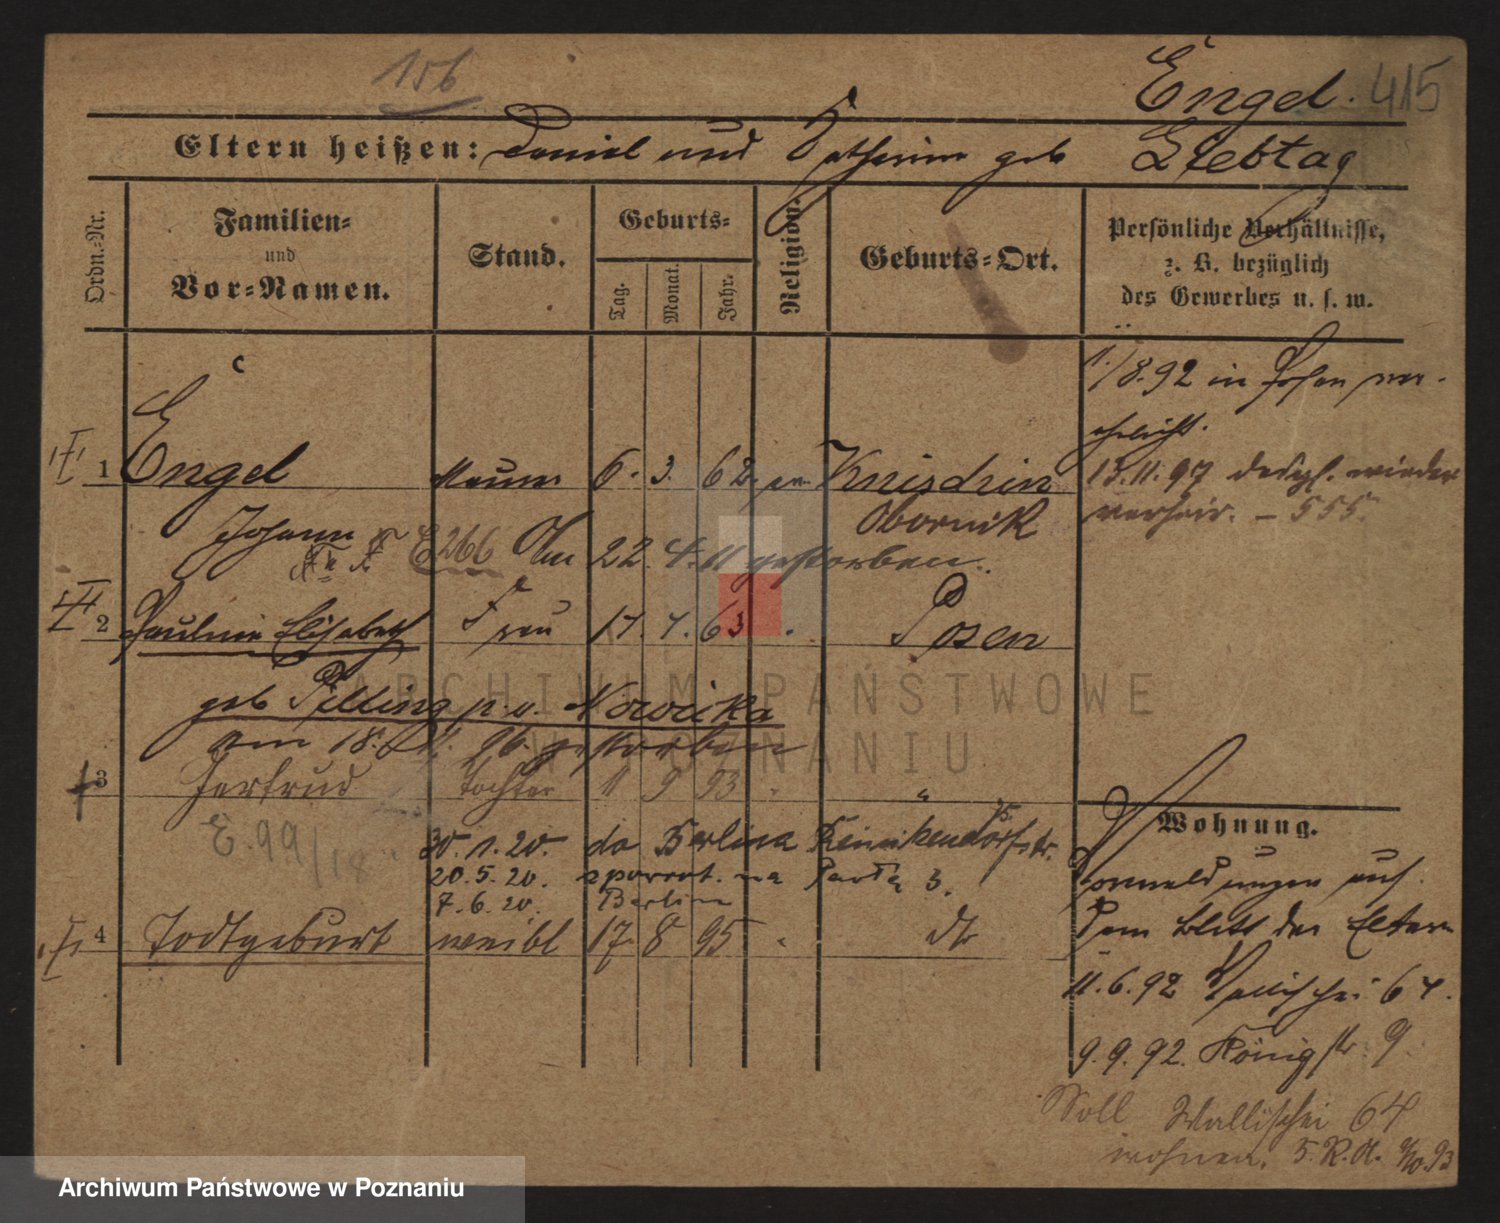 156
Engel. 415
Eltern heißen: Daniel und Katharina geb Liebtag
Ordn.-Nr.
Familien-
und
Vor-Namen.
Stand.
Geburts-
Tag.
Monat.
Jahr.
Religion.
Geburts-Ort.
Persönliche Verhältnisse,
z. B. bezüglich
des Gewerbes u. s. w.
1./8.92 in Posen ver-
ehelicht.
1 Engel Maurer 6. 3. 62 Knisdrin
13.11.97 wieder
Obornik
verheir. – 555.
Johann E266 Am 22. 4. 11 gestorben.
2 Pauline Elisabeth Frau 17. 7. 63 Posen
geb Pilling p. v. Nowicka
am 18. 96. gestorben
3 Gertrud Tochter 11 9 93 "
E. 99/18
Wohnung.
30. 1. 20. do Berlina Reinikendorfstr.
20. 5. 20. spowrot. na 3.
7. 6. 20. Berlin
4 Todtgeburt weibl 17. 8 95 dto
dem Blatt der Eltern
11. 6. 92 Wallischei 64.
9. 9. 92. Königstr. 9
Soll Wallischei 64
wohnen. 5. R. A. 93
ARCHIWUM PAŃSTWOWE
W POZNANIU
Archiwum Państwowe w Poznaniu